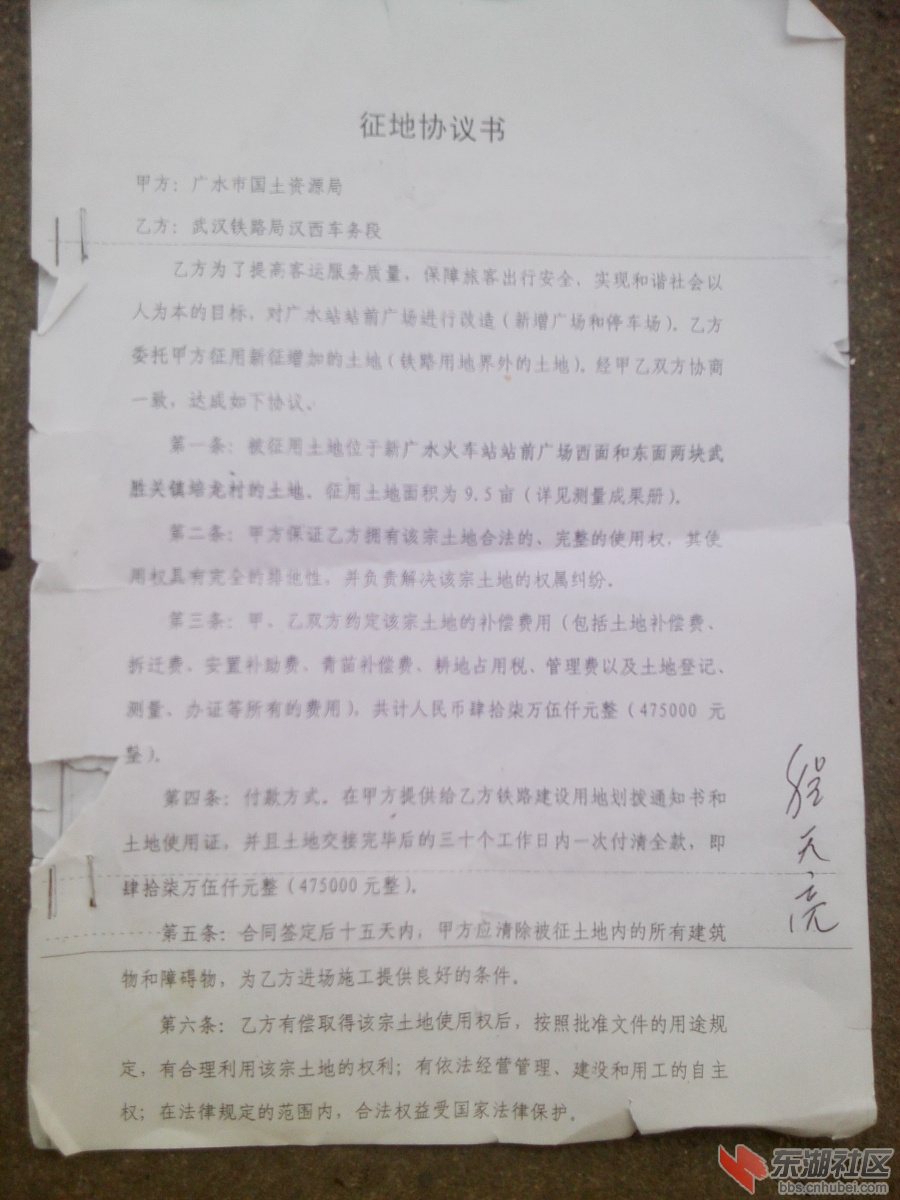 征地协议书
甲方：广水市国土资源局
乙方：武汉铁路局汉西车务段
乙方为了提高客运服务质量，保障旅客出行安全，实现和谐社会以
人为本的目标，对广水站站前广场进行改造（新增广场和停车场）。乙方
委托甲方征用新征增加的土地（铁路用地界外的土地）。经甲乙双方协商
一致，达成如下协议。
第一条：被征用土地位于新广水火车站站前广场西面和东面两块武
胜关镇培龙村的土地。征用土地面积为9.5亩（详见测量成果册）。
第二条：甲方保证乙方拥有该宗土地合法的、完整的使用权，其使
用权具有完全的排他性，并负责解决该宗土地的权属纠纷。
第三条：甲、乙双方约定该宗土地的补偿费用（包括土地补偿费、
拆迁费、安置补助费、青苗补偿费、耕地占用税、管理费以及土地登记、
测量、办证等所有的费用），共计人民币肆拾柒万伍仟元整（475000 元
整）。
第四条：付款方式。在甲方提供给乙方铁路建设用地划拨通知书和
土地使用证，并且土地交接完毕后的三十个工作日内一次付清全款，即
肆拾柒万伍仟元整（475000元整）。
第五条：合同签定后十五天内，甲方应清除被征土地内的所有建筑
物和障碍物，为乙方进场施工提供良好的条件。
第六条：乙方有偿取得该宗土地使用权后，按照批准文件的用途规
定，有合理利用该宗土地的权利；有依法经营管理、建设和用工的自主
权；在法律规定的范围内，合法权益受国家法律保护。
程天亮
东湖社区
bbs.cnhubei.com